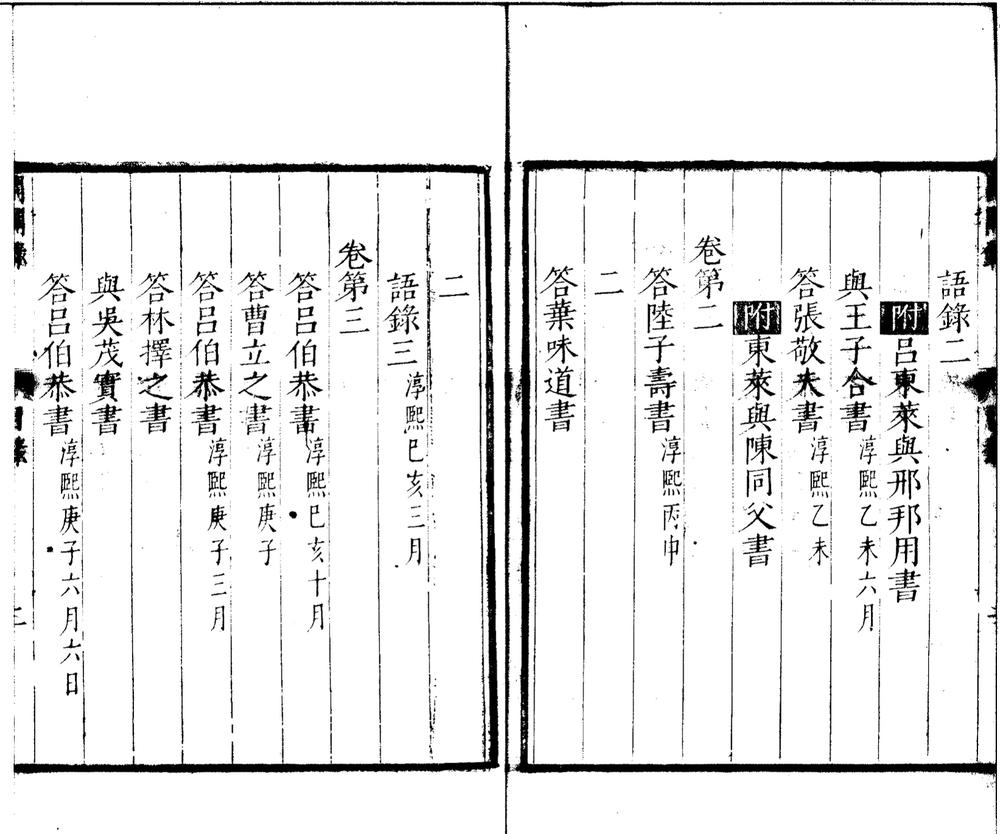 語錄二
附呂東萊與邢邦用書
與王子合書淳熙乙未六月
答張敬夫書淳熙乙未
附東萊與陳同父書
卷第二
答陸子壽書淳熙丙申
二
答葉味道書
二
語錄三淳熙已亥三月
卷第三
答呂伯恭書淳熙已亥十月
答曹立之書淳熙庚子
答呂伯恭書淳熙庚子三月
答林擇之書
與吳茂實書
答呂伯恭書淳熙庚子六月六日